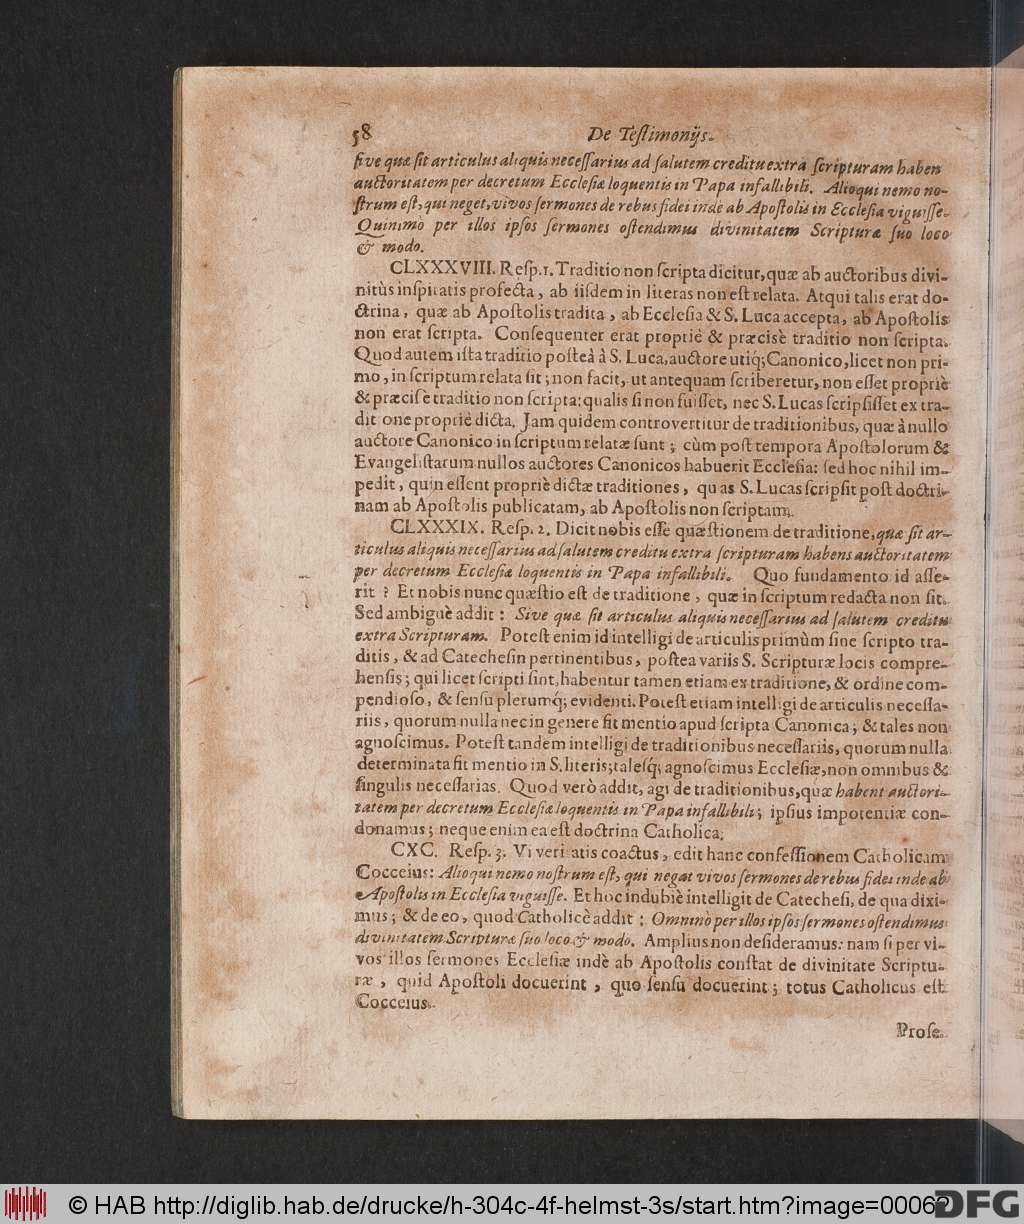 58 De Teſtimonijs.
ſive quæ ſit articulus aliquis neceſſarius ad ſalutem creditu extra ſcripturam haben
auctoritatem per decretum Eccleſiæ loquentis in Papa infallibili. Alioqui nemo no-
ſtrum eſt, qui neget, vivos ſermones de rebus fidei inde ab Apoſtolis in Eccleſia viguiſſe.
Quinimo per illos ipſos ſermones oſtendimus divinitatem Scripturæ ſuo loco
& modo.
CLXXXVIII. Reſp. 1. Traditio non ſcripta dicitur, quæ ab auctoribus divi-
nitùs inſpiratis profecta, ab iiſdem in literas non eſt relata. Atqui talis erat do-
ctrina, quæ ab Apoſtolis tradita, ab Eccleſia & S. Luca accepta, ab Apoſtolis
non erat ſcripta. Conſequenter erat propriè & præcisè traditio non ſcripta.
Quod autem iſta traditio poſteà à S. Luca, auctore utiq́; Canonico, licet non pri-
mo, in ſcriptum relata ſit; non facit, ut antequam ſcriberetur, non eſſet propriè
& præciſe traditio non ſcripta: qualis ſi non fuiſſet, nec S. Lucas ſcripſiſſet ex tra-
ditione propriè dicta. Jam quidem controvertitur de traditionibus, quæ à nullo
auctore Canonico in ſcriptum relatæ ſunt; cùm poſt tempora Apoſtolorum &
Evangeliſtarum nullos auctores Canonicos habuerit Eccleſia: ſed hoc nihil im-
pedit, quin eſſent propriè dictæ traditiones, quas S. Lucas ſcripſit poſt doctri-
nam ab Apoſtolis publicatam, ab Apoſtolis non ſcriptam.
CLXXXIX. Reſp. 2. Dicit nobis eſſe quæſtionem de traditione, quæ ſit ar-
ticulus aliquis neceſſarius ad ſalutem creditu extra ſcripturam habens auctoritatem
per decretum Eccleſiæ loquentis in Papa infallibili. Quo fundamento id aſſe-
rit? Et nobis nunc quæſtio eſt de traditione, quæ in ſcriptum redacta non ſit.
Sed ambiguè addit: Sive quæ ſit articulus aliquis neceſſarius ad ſalutem creditu
extra Scripturam. Poteſt enim id intelligi de articulis primùm ſine ſcripto tra-
ditis, & ad Catecheſin pertinentibus, poſtea variis S. Scripturæ locis compre-
henſis; qui licet ſcripti ſint, habentur tamen etiam ex traditione, & ordine com-
pendioſo, & ſenſu plerumq́; evidenti. Poteſt etiam intelligi de articulis neceſſa-
riis, quorum nulla nec in genere fit mentio apud ſcripta Canonica; & tales non
agnoſcimus. Poteſt tandem intelligi de traditionibus neceſſariis, quorum nulla
determinata fit mentio in S. literis; taleſq́; agnoſcimus Eccleſiæ, non omnibus &
ſingulis neceſſarias. Quod verò addit, agi de traditionibus, quæ habent auctori-
tatem per decretum Eccleſiæ loquentis in Papa infallibili; ipſius impotentiæ con-
donamus; neque enim ea eſt doctrina Catholica.
CXC. Reſp. 3. Vi veritatis coactus, edit hanc confeſſionem Catholicam
Cocceius: Alioqui nemo noſtrum eſt, qui negat vivos ſermones de rebus fidei inde ab
Apoſtolis in Eccleſia viguiſſe. Et hoc indubiè intelligit de Catecheſi, de qua dixi-
mus; & de eo, quod Catholicè addit: Omninò per illos ipſos ſermones oſtendimus
divinitatem Scripturæ ſuo loco & modo. Amplius non deſideramus: nam ſi per vi-
vos illos ſermones Eccleſiæ indè ab Apoſtolis conſtat de divinitate Scriptu-
ræ, quid Apoſtoli docuerint, quo ſenſu docuerint; totus Catholicus eſt
Cocceius.
Proſe-
© HAB http://diglib.hab.de/drucke/h-304c-4f-helmst-3s/start.htm?image=00062
DFG